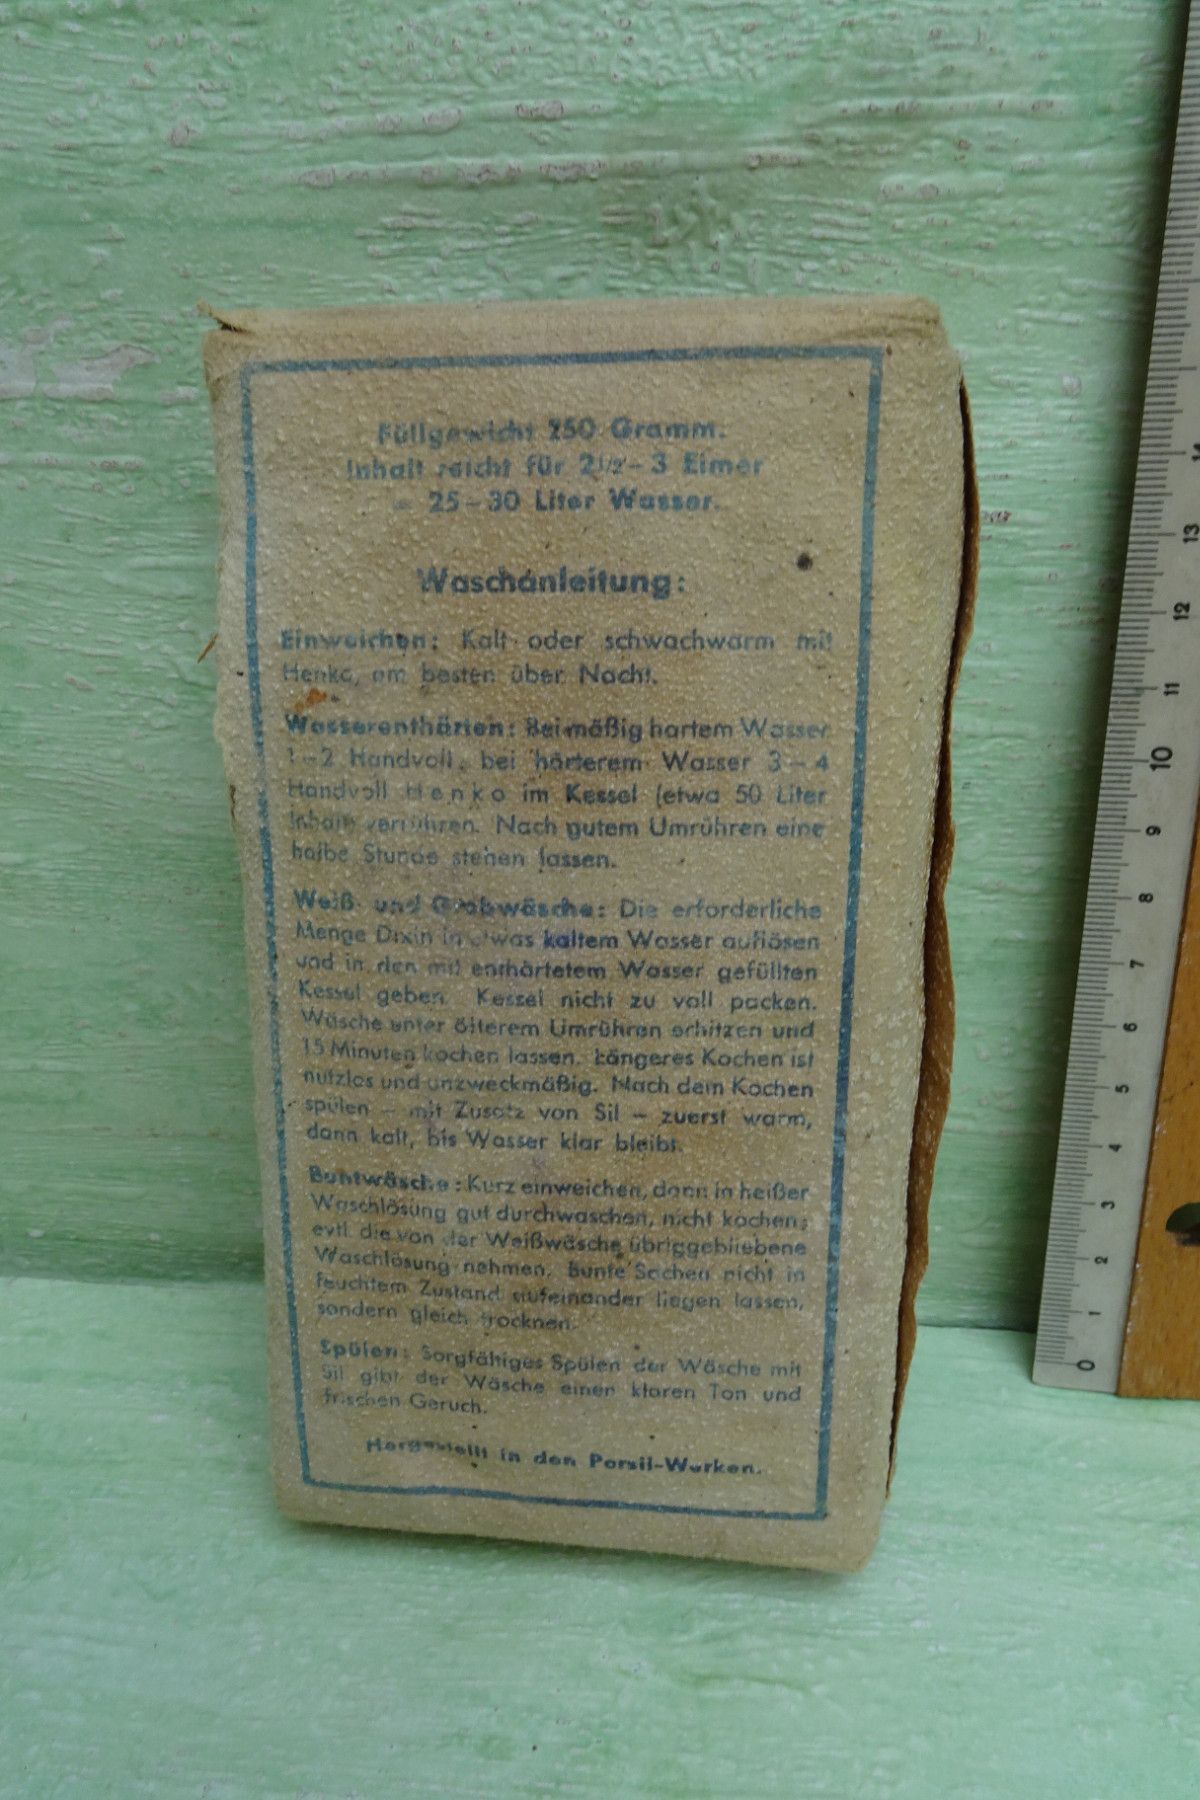 Füllgewicht 250 Gramm.
Inhalt reicht für 2½ – 3 Eimer
= 25 – 30 Liter Wasser.
Waschanleitung:
Einweichen: Kalt oder schwachwarm mit
Henko, am besten über Nacht.
Wasserenthärten: Bei mäßig hartem Wasser
1–2 Handvoll, bei härterem Wasser 3–4
Handvoll Henko im Kessel (etwa 50 Liter
Inhalt) verrühren. Nach gutem Umrühren eine
halbe Stunde stehen lassen.
Weiß- und Grobwäsche: Die erforderliche
Menge Dixin in etwas kaltem Wasser auflösen
und in den mit enthärtetem Wasser gefüllten
Kessel geben. Kessel nicht zu voll packen.
Wäsche unter öfterem Umrühren erhitzen und
15 Minuten kochen lassen. Längeres Kochen ist
nutzlos und unzweckmäßig. Nach dem Kochen
spülen – mit Zusatz von Sil – zuerst warm,
dann kalt, bis Wasser klar bleibt.
Buntwäsche: Kurz einweichen, dann in heißer
Waschlösung gut durchwaschen, nicht kochen;
evtl. die von der Weißwäsche übriggebliebene
Waschlösung nehmen. Bunte Sachen nicht in
feuchtem Zustand aufeinander liegen lassen,
sondern gleich trocknen.
Spülen: Sorgfältiges Spülen der Wäsche mit
Sil gibt der Wäsche einen klaren Ton und
frischen Geruch.
Hergestellt in den Persil-Werken.
14
13
12
11
10
9
8
7
6
5
4
3
2
1
0